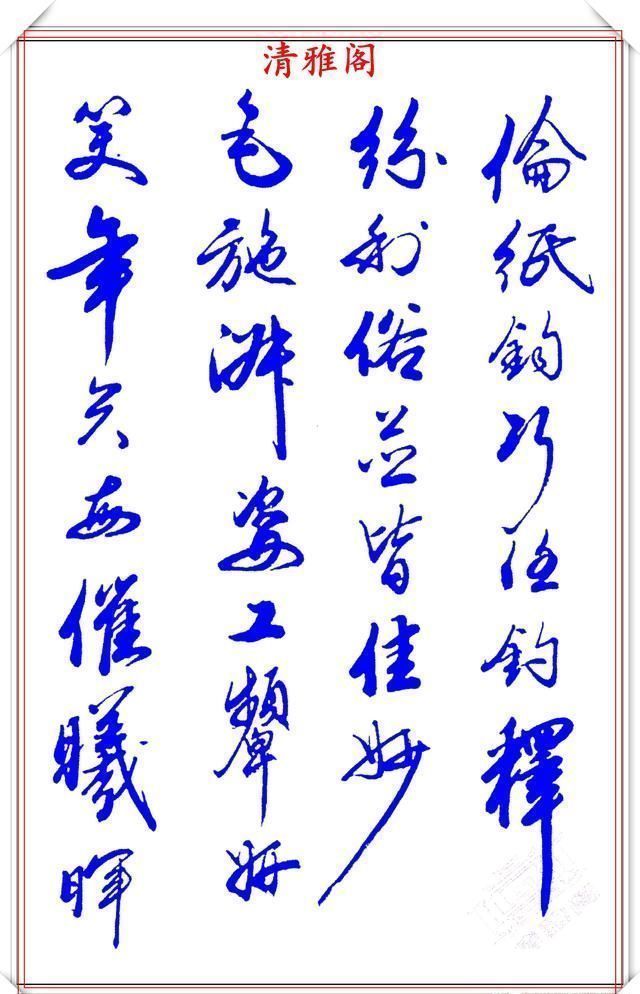 清雅阁
倫紙鈞巧任釣釋
紛利俗並皆佳妙
毛施淑姿工顰妍
笑年矢每催曦暉